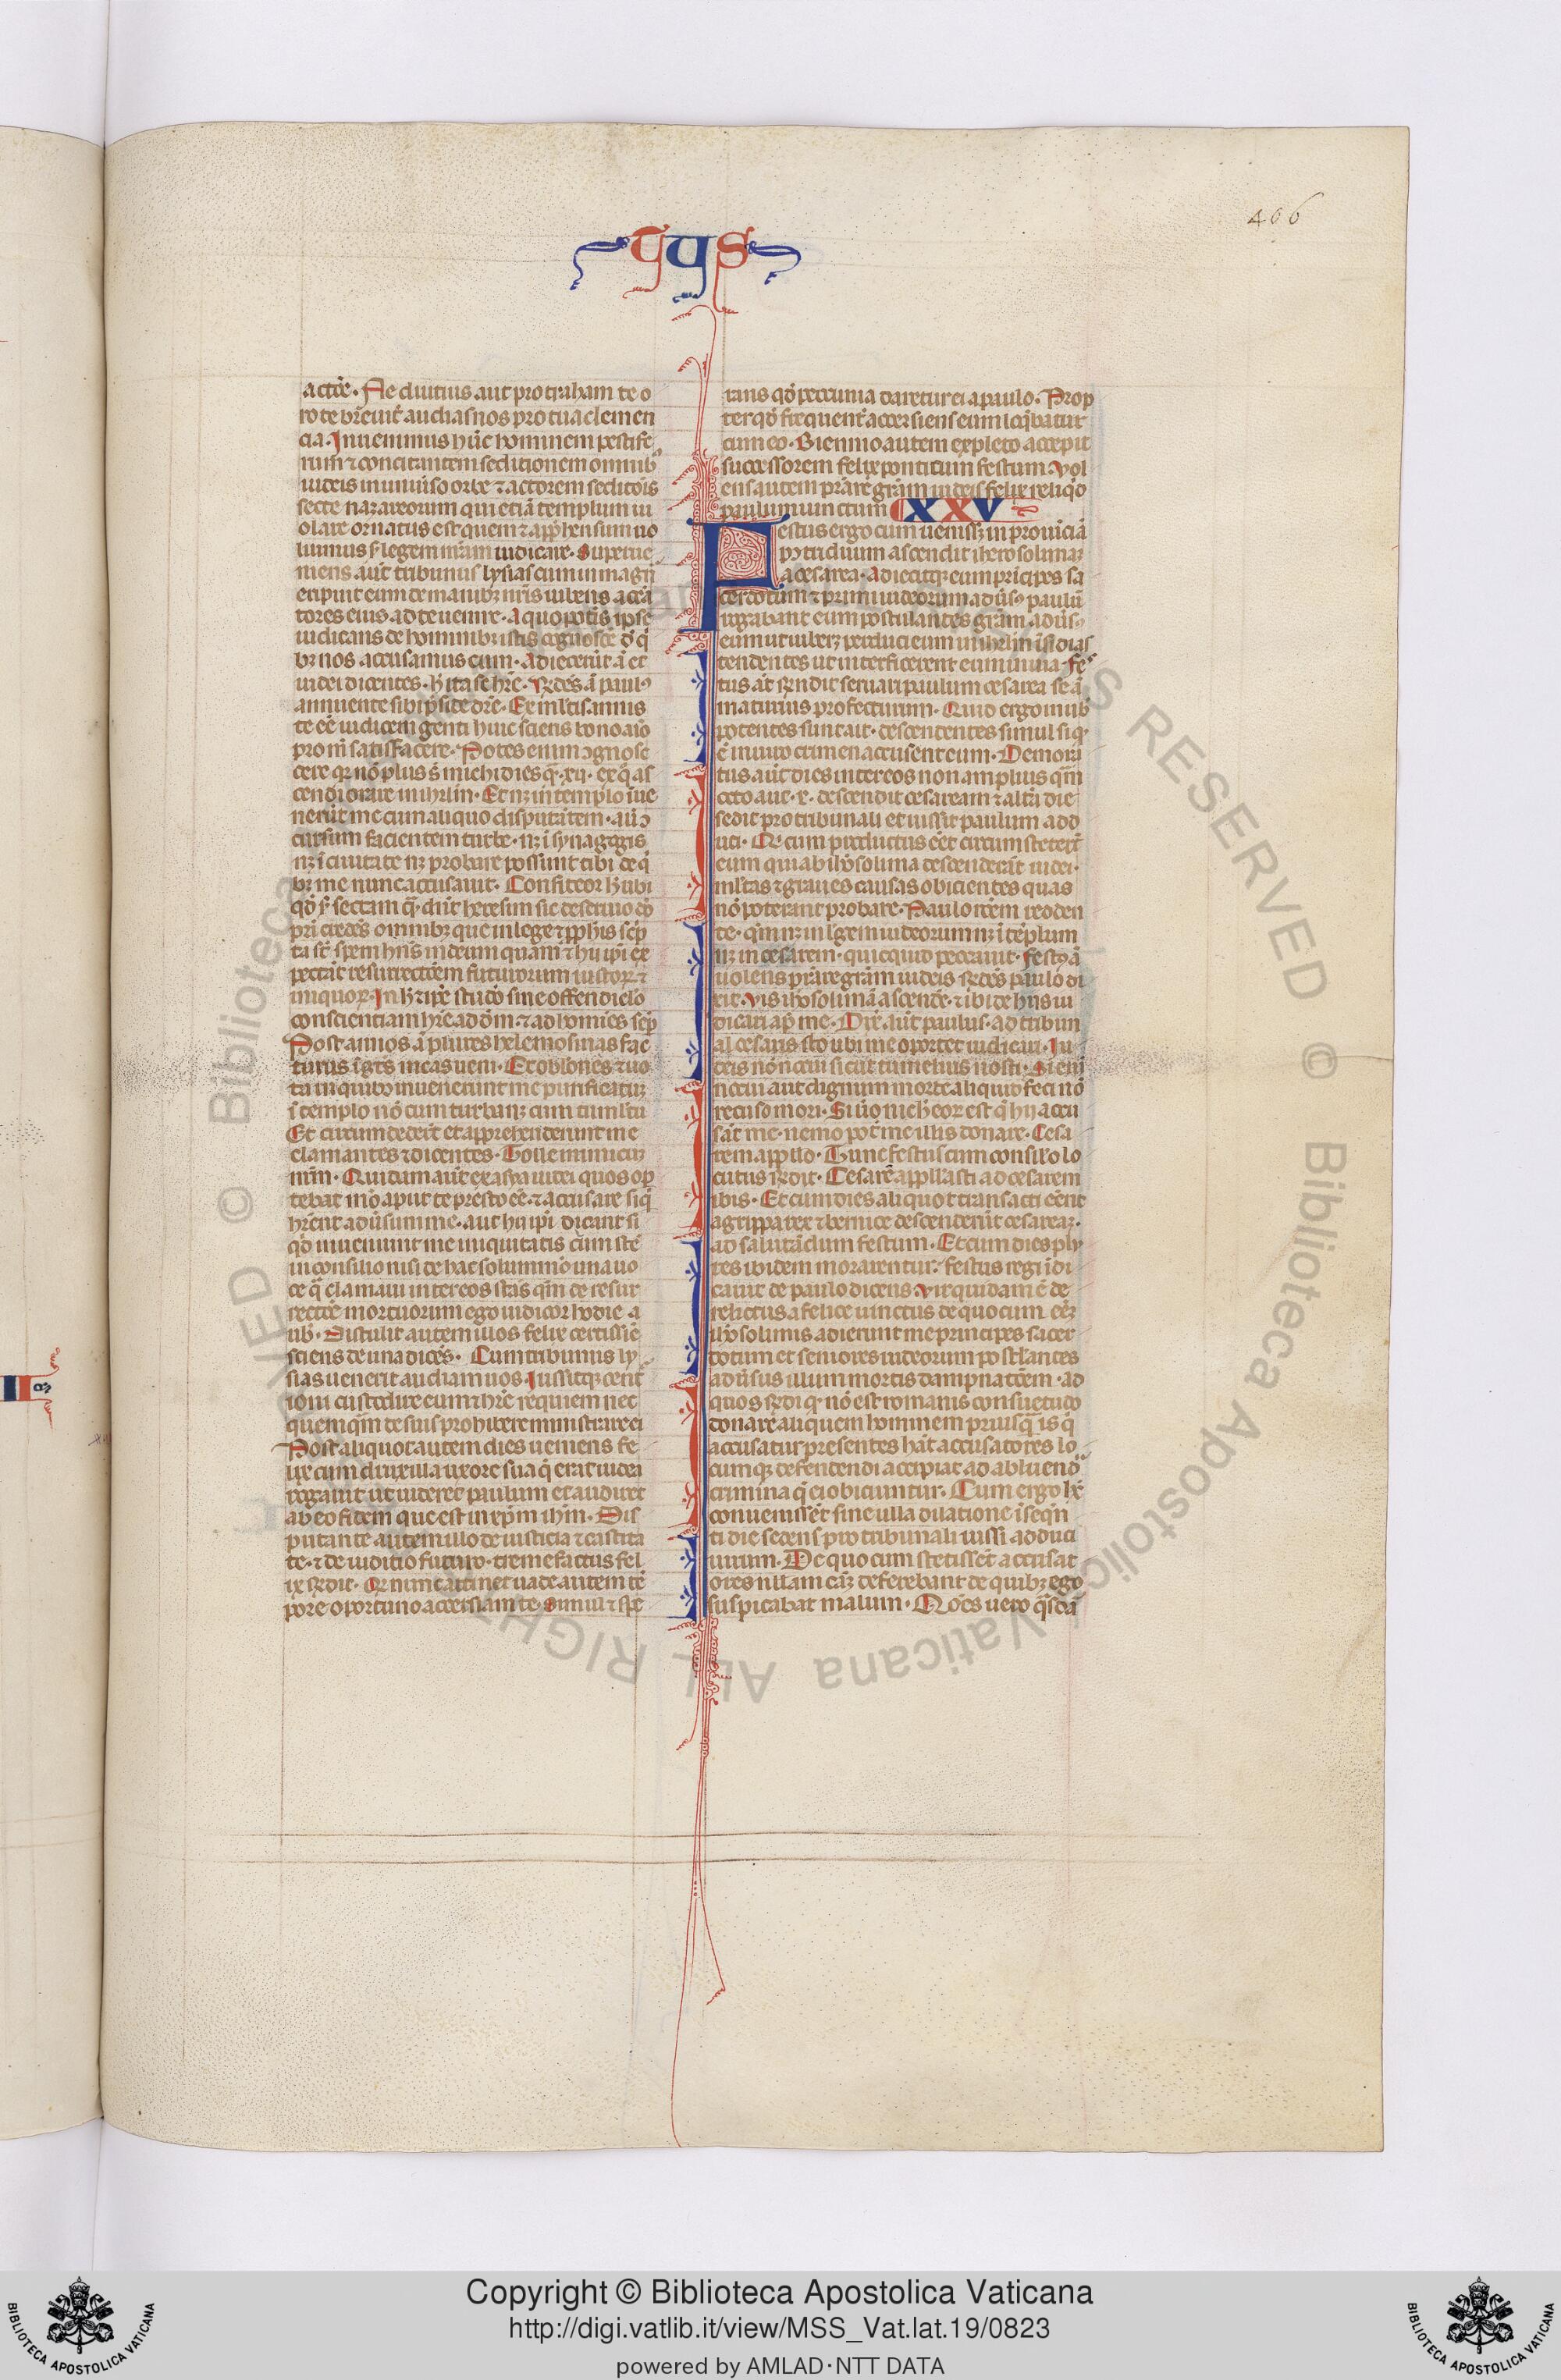 406
TUS
acttōe. Ne diutius aut protraham te o
ro te breuit̄ audias nos pro tua clemen
cia. Inuenimus hūc hominem pestife
rum ⁊ concitantem seditionem omnib⁹
iudeis in uniūso orbe ⁊ actorem seditōis
secte nazareorum qui etiā templum ui
olare conatus est quem ⁊ app̄hensum uo
luimus s̄ legem nr̄am iudicare. Superue
niens aut̄ tribunus lysias cum ui magn̄
eripuit eum de manibꝫ nr̄is iubens accā
tores eius ad te uenire. a quo pot̄is ipse
iudicans de hominibꝫ istis cognosce̅ d̄ q̄
bꝫ nos accusamus eum. Adiecerūt ā et
iudei dicentes. h̄ ita se hr̄e. R̄dēs ā paul⁹
annuente sibi p̄side dr̄e. Ex ml̄tis annis
te eē iudicem genti huic sciens bono aīo
pro m̄ satisfacere. Potes enim ꝯgnosc
cere qꝛ nō plus s̄ michi dies q̄. xij. ex q̄ as
cendi orare in ihrlm̄. Et nꝫ in templo īue
nerūt me cum aliquo disputātem. aū ꝯ
cursum facientem turbe. nꝫ ī synagogis
nꝫ ī ciuitate nꝫ probare possunt tibi de q̄
bꝫ me nunc accusant. Confiteor h̄ tibi
qd̄ s̄ sectam q̄. dn̄t heresim sic deseruio dō
pr̄i credēs omnibꝫ que in lege ⁊ pphis sc̄p
ta st̄ spem hn̄s in deum quam ⁊ hij ipi ex
pectāt resurrectōem futurorum iustoꝝ ⁊
iniquoꝝ. In h̄ ⁊ ip̄e studeo sine offendiclo
conscientiam hr̄e ad dm̄. ⁊ ad homines sep̄
Post annos ā plures helemosinas fac
turus ī gēt̄ meas ueni. Et oblōnes ⁊ uo
ta in quibꝫ inuenerunt me purificatuꝫ
ī templo nō cum turba nꝫ cum tumltu
Et circumdederūt et apprehenderunt me
clamantes ⁊ dicentes. Tolle inimicuꝫ
nr̄m. Quidam aut̄ ex asya iudei quos op̄
tebat mō aput te presto eē. ⁊ accusare si q̄
hrēnt adūsum me. aut hij ipi dicant si
qd̄ inuenerunt me iniquitatis cum stē
in consilio nisi de hac solummō una uo
ce q̄ clamaui inter eos stās qm̄ de resur
rectōe mortuorum ego iudicor hodie a
ub̄. Distulit autem illos felix certissīe
sciens de uia dicēs. Cum tribunus ly
sias uenerit audiam uos. Iussitqꝫ cent̄
ioni custodire eum ⁊ hr̄e requiem nec
quemq̄m de suis prohibere ministrare ei
Post aliquot autem dies ueniens fe
lix cum drusilla uxore sua q̄ erat iudea
rogauit ut uideret paulum et audiret
ab eo fidem que est in xp̄m ihm̄. Dis
putante autem illo de iusticia ⁊ castita
te. ⁊ de iuditio futuro. tremefactus fel
ix r̄dit. Q̄ nunc attinet uade autem tē
pore oportuno accersiam te. Simul ⁊ spe
rans qd̄ peccunia daretur ei a paulo. Prop
ter qd̄ frequent̄ accersiens eum loq̄batur
cum eo. Biennio autem expleto accepit
successorem felix pontitium festum. Vol
ens autem pr̄are gr̄am iudeis felix reliq̄d
paulum uinctum XXV
Festus ergo cum uenisꝫ in prouīciā
p⁹ triduum ascendit iherosolimaꝫ
a cesarea. adieritqꝫ eum prīcipes sa
cerdotum ⁊ primi iudeorum adūs⁹ paulū
rogabant eum postulantes gr̄am adūs⁹
eum ut iuberꝫ perduci eum in ihrlm̄ īsidias
tendentes ut interficerent eum in uia. Fes
tus āt r̄endit seruari paulum cesarea se ā
maturius profecturum. Qui ergo in ub̄
potentes sunt ait. descendentes simul si q̄.
ē in uiro crimen accusent eum. Demora
tus aūt dies inter eos non amplius q̄m
octo aut. x. descendit cesaream ⁊ altā die
sedit pro tribunali et iussit paulum add
uci. Q̄ cum productus eēt circumstetert̄
eum qui ab ih̄osolima descenderāt iudei.
ml̄tas ⁊ graues causas obicientes quas
nō poterant probare. Paulo ītem redden
te. qm̄ nꝫ in l̄gem iudeorum nꝫ ī tēplum
nꝫ in cesarem. quicquid peccauit. Festꝫ ā
uolens pr̄are gr̄am iudeis r̄dēs paulo di
xit. Vis ih̄osolimā ascende̅. ⁊ ibi de hijs iu
dicari ap̄ me. Dix̄ aūt paulus. ad tribun
al cesaris sto ubi me oportet iudicari. Iu
deis nō nocui sicut tu melius nosti. Si enī
nocui aut dignum morte aliquid feci nō
recuso mori. Si uō nich̄ eoꝝ est q̄ hij accu
sāt me. nemo pot̄ me illis donare. Cesa
rem app̄llo. Tunc festus cum consil̄o lo
cutus r̄dit. Cesarē appll̄asti ad cesarem
ibis. Et cum dies aliquot transacti eēnt
agrippa rex ⁊ bernice descenderūt cesareaꝫ.
ad salutādum festum. Et cum dies plu
res ibidem morarentur. festus regi īdi
cauit de paulo dicens. Vir quidam ē de
relictus a felice uinctus de quo cum eēꝫ
ih̄osolimis adierunt me principes sacer
dotum et seniores iudeorum postl̄antes
adūsus illum mortis dampnatōem. ad
quos r̄di qꝛ. nō est romanis consuetudo
donare aliquem hominem priusq̄ is q̄
accusatur presentes hāt accusatores lo
cumqꝫ defendendi accipiat ad abluend̄
crimina q̄ ei obiciuntur. Cum ergo h̄c
conuenisset̄ sine ulla dilatione īseq̄n
ti die sedens pro tribunali iussi adduci
uirum. De quo cum stetissēt accusat
ores nullam cāꝫ deferebant de quibꝫ ego
suspicabar malum. Q̄ōes uero q̄sdā
Copyright © Biblioteca Apostolica Vaticana
http://digi.vatlib.it/view/MSS_Vat.lat.19/0823
powered by AMLAD·NTT DATA
BIBLIOTECA APOSTOLICA VATICANA
BIBLIOTECA APOSTOLICA VATICANA
© Biblioteca Apostolica Vaticana ALL RIGHTS RESERVED